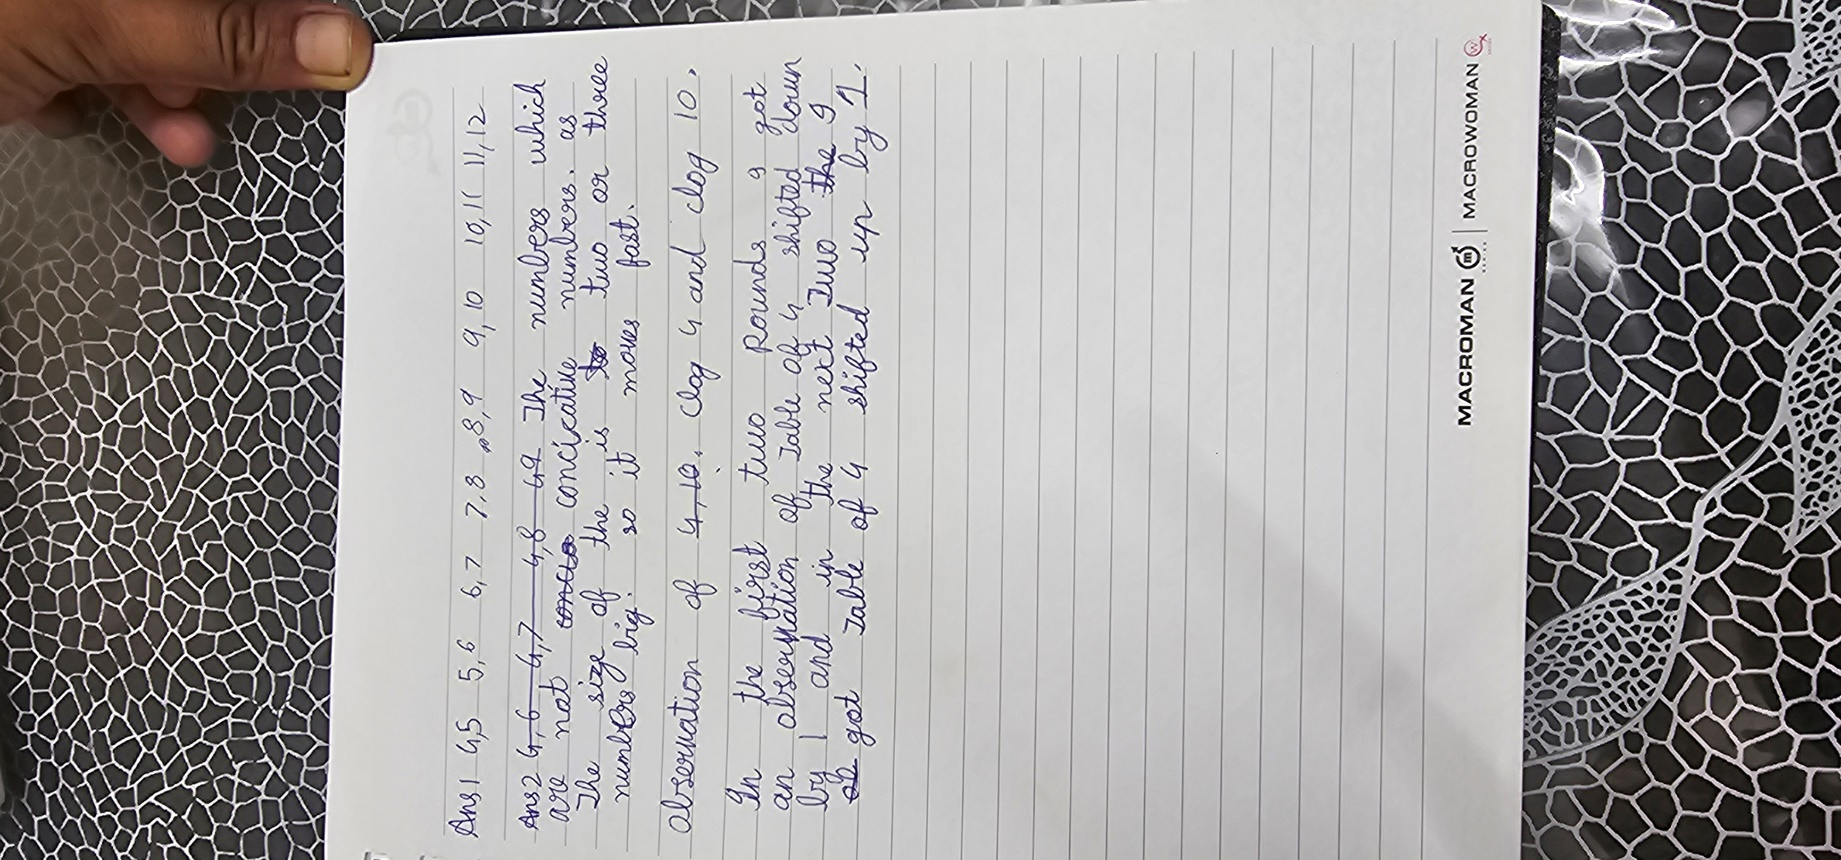 Ans 1 4,5 5,6 6,7 7,8 8,9 9,10 10,11 11,12
Ans 2 4,6 4,7 4,8 4,9 The numbers which
are not concicative numbers. as
The size of the is to two or three
numbers big. so it moves fast.
observation of 4,10. Clog 4 and clog 10.
In the first two Rounds I got
an observation of Table of 4 shifted down
by 1 and in the next Two the I
got Table of 4 shifted up by 1.
MACROMAN m | MACROWOMAN W